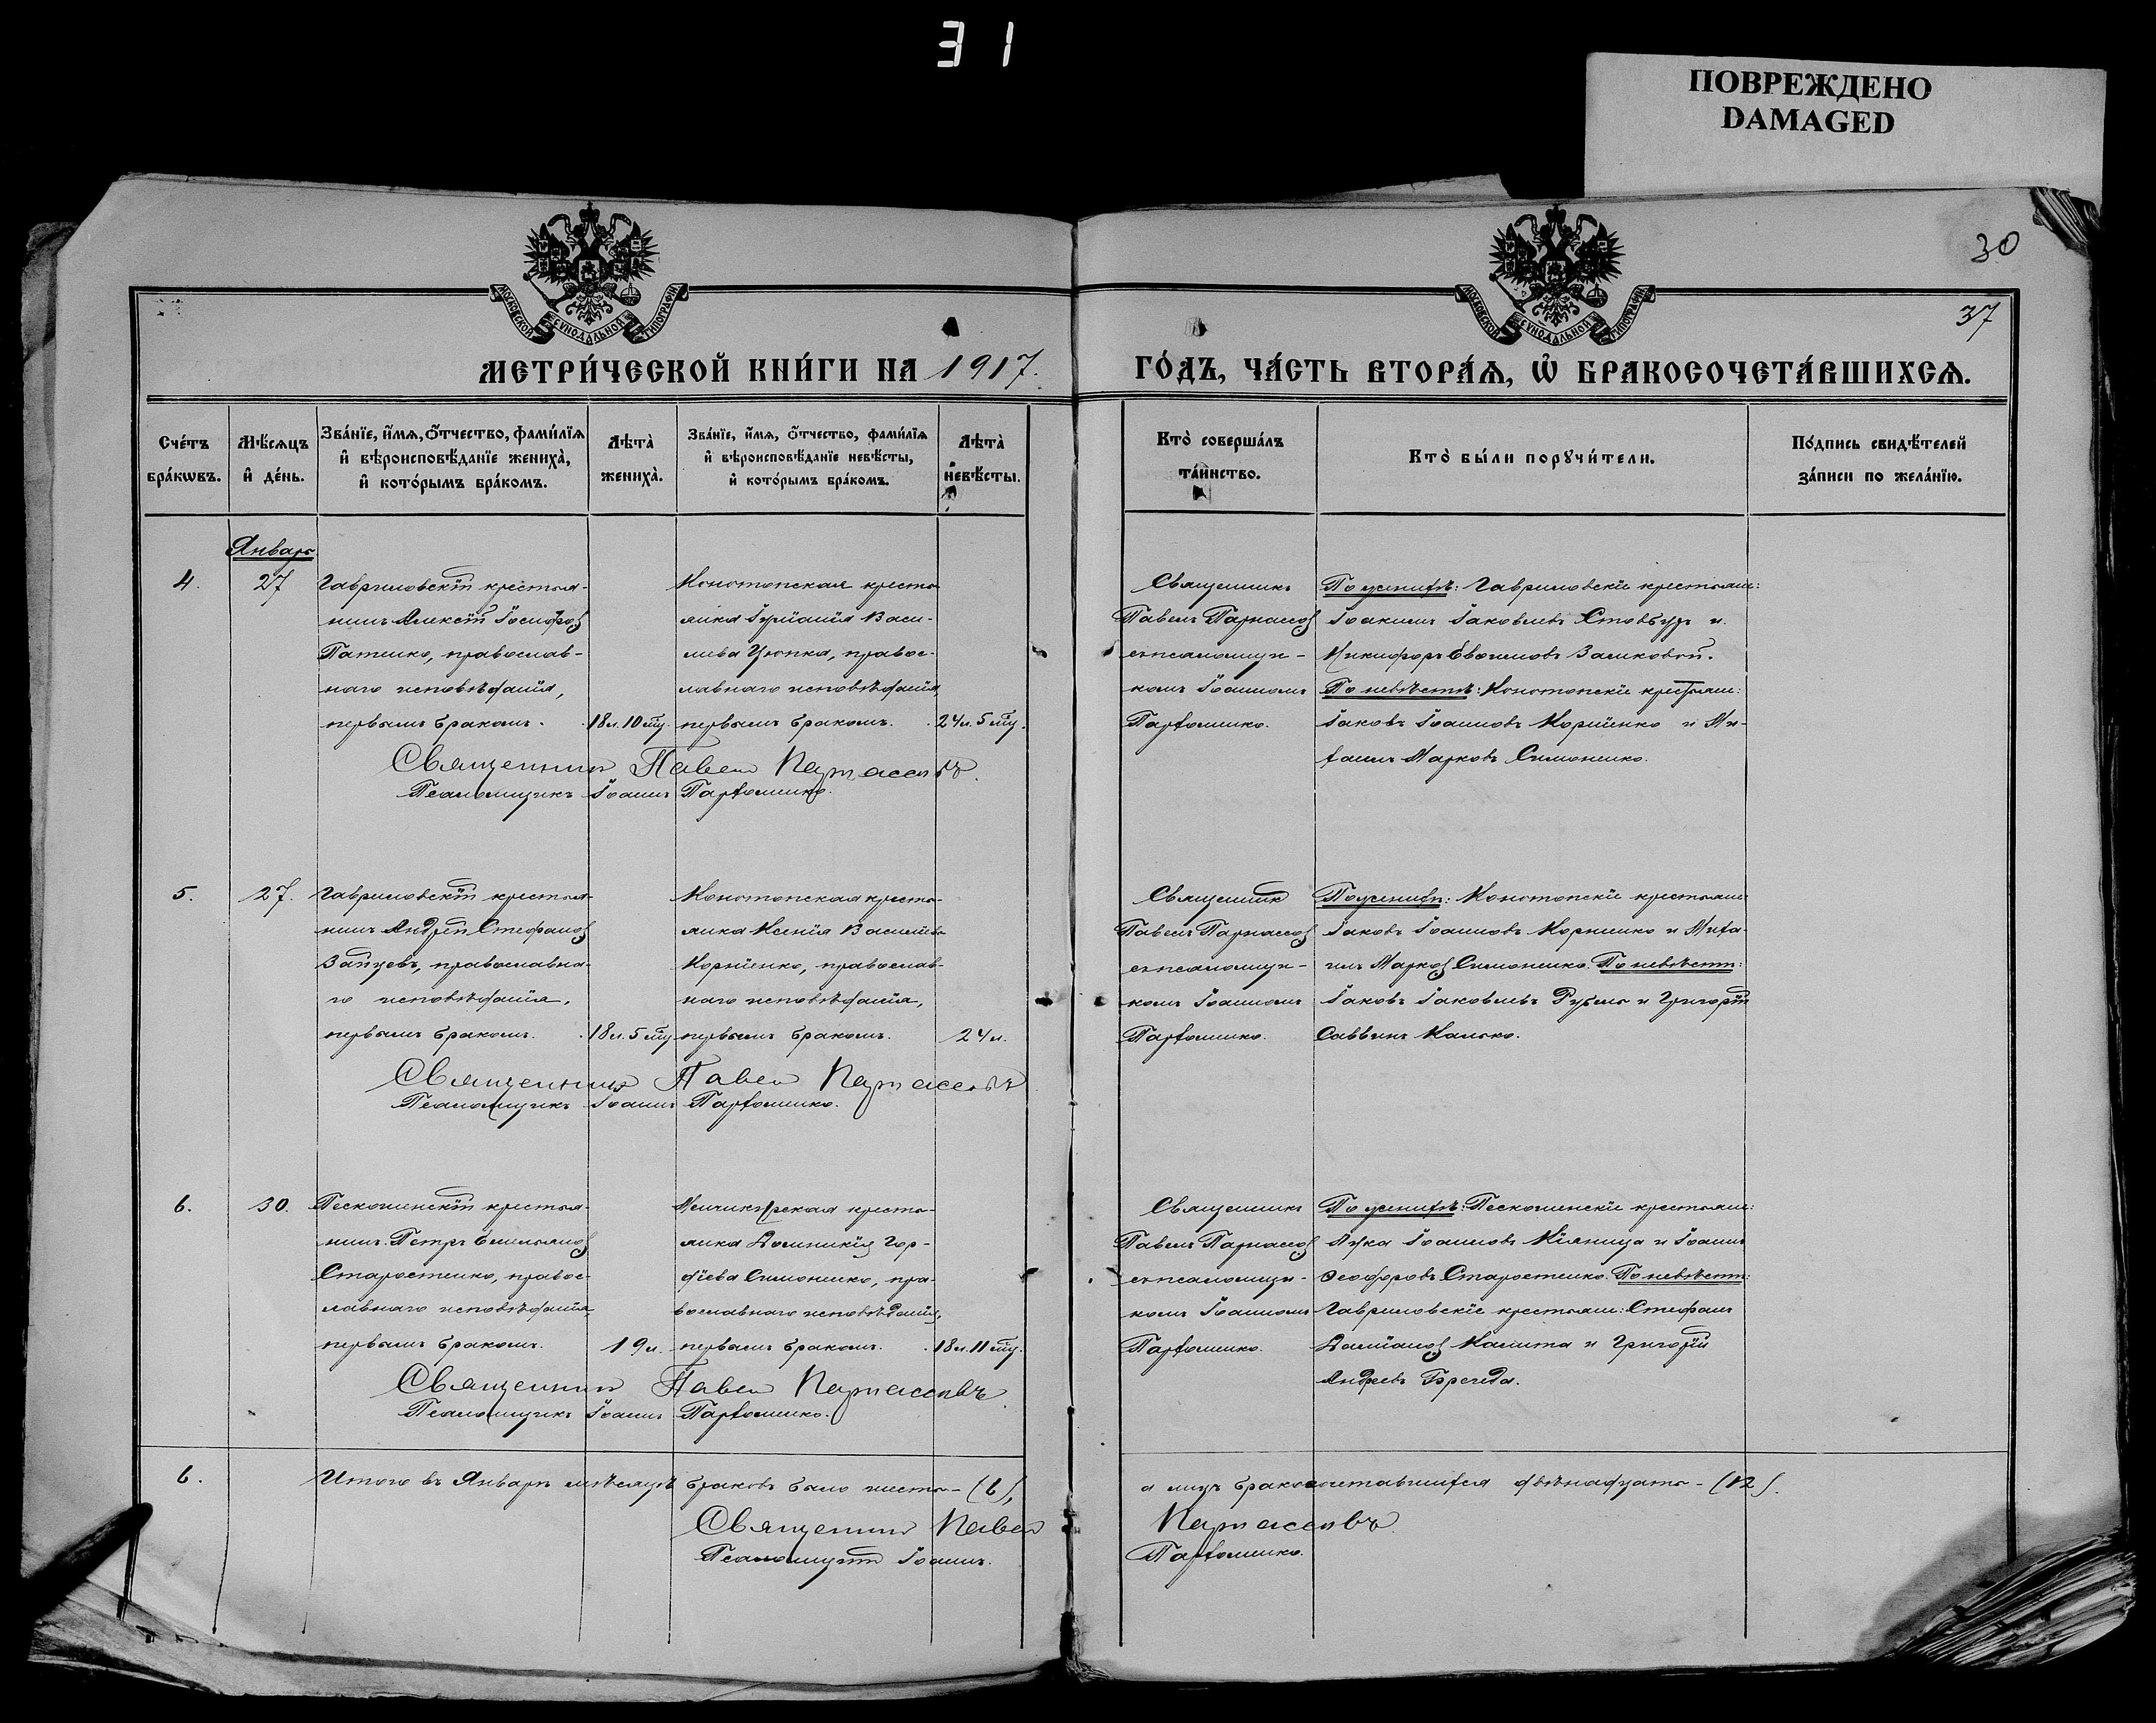 31
ПОВРЕЖДЕНО
DAMAGED
30
37
МОСКОВСКОЙ СѴНОДАЛЬНОЙ ТИПОГРАФІИ
МОСКОВСКОЙ СѴНОДАЛЬНОЙ ТИПОГРАФІИ
МЕТРИ́ЧЕСКОЙ КНИ́ГИ НА 1917.
ГО́ДЪ, ЧА́СТЬ ВТОРА́Ѧ, Ѡ҆ БРАКОСОЧЕТА́ВШИХСѦ.
Сче́тъ бра́кѡвъ.
Мѣ́сѧцъ и҆ де́нь.
Зва́нїе, и҆́мѧ, ѻ҆́тчество, фами́лїѧ
и҆ вѣроисповѣ́данїе жениха̀,
и҆ кото́рымъ бра́комъ.
Лѣта̀ жениха̀.
Зва́нїе, и҆́мѧ, ѻ҆́тчество, фами́лїѧ
и҆ вѣроисповѣ́данїе невѣ́сты,
и҆ кото́рымъ бра́комъ.
Лѣта̀ невѣ́сты.
Кто̀ соверша́лъ та́инство.
Кто̀ бы́ли порꙋчи́тели.
По́дпись свидѣ́телей за́писи по жела́нїю.
Январь
4.
27
Гавриловскій крестья-
нинъ Алексѣй Іосифов
Патенко, православ-
наго исповѣданія,
первымъ бракомъ.
18 л. 10 мц.
Конотопская кресть-
янка Васи-
льева Цюпка, правос-
лавнаго исповѣданія
первымъ бракомъ.
24 л. 5 мц.
Священникъ
Павелъ Парнассов
съ псаломщи-
комъ Іоанномъ
Парѳоменко.
По женихѣ: Гавриловскіе крестьяне:
Іоакимъ Іаковлевъ Стовбуръ и
Никифоръ Заиковой.
По невѣстѣ: Конотопскіе крестьяне:
Іаковъ Іоанновъ Корніенко и Ми-
хаилъ Марковъ Симоненко.
Священникъ Павелъ Парнассовъ.
Псаломщикъ Іоаннъ Парѳоменко.
5.
27.
Гавриловскій крестья-
нинъ Андрей Стефанов
Зайцевъ, православна-
го исповѣданія,
первымъ бракомъ.
18 л. 5 мц.
Конотопская кресть-
янка Ксенія Васильева
Корніенко, православ-
наго исповѣданія,
первымъ бракомъ.
24 л.
Священник
Павелъ Парнассов
съ псаломщи-
комъ Іоанномъ
Парѳоменко.
По женихѣ: Конотопскіе крестьяне:
Іаковъ Іоанновъ Корніенко и Миха-
илъ Марков Симоненко. По невѣст:
Іаковъ Іаковлевъ Рубель и Григорій
Саввинъ Калько.
Священникъ Павелъ Парнассовъ
Псаломщикъ Іоаннъ Парѳоменко.
6.
30.
Пескошинскій крестья-
нинъ Петръ Емельянов
Старостенко, правос-
лавнаго исповѣданія,
первымъ бракомъ.
19 л.
Менчикурская кресть-
янка Домникія Гор-
дѣева Симоненко, пра-
вославнаго исповѣданія,
первымъ бракомъ.
18 л. 11 мц.
Священникъ
Павелъ Парнассов
съ псаломщи-
комъ Іоанномъ
Парѳоменко.
По женихѣ: Пескошинскіе крестьяне:
Лука Іоанновъ Кіяница и Іоаннъ
Ѳеодоровъ Старостенко. По невѣст:
Гавриловскіе крестьяне: Стефанъ
Даміанов Калита и Григорій
Андреевъ
Священникъ Павелъ Парнассовъ.
Псаломщикъ Іоаннъ Парѳоменко.
6.
Итого въ Январѣ мѣсяцѣ браковъ было шесть - (6),
а лицъ бракосочетавшихся двѣнадцать - (12).
Священникъ Павелъ Парнассовъ.
Псаломщикъ Іоаннъ Парѳоменко.